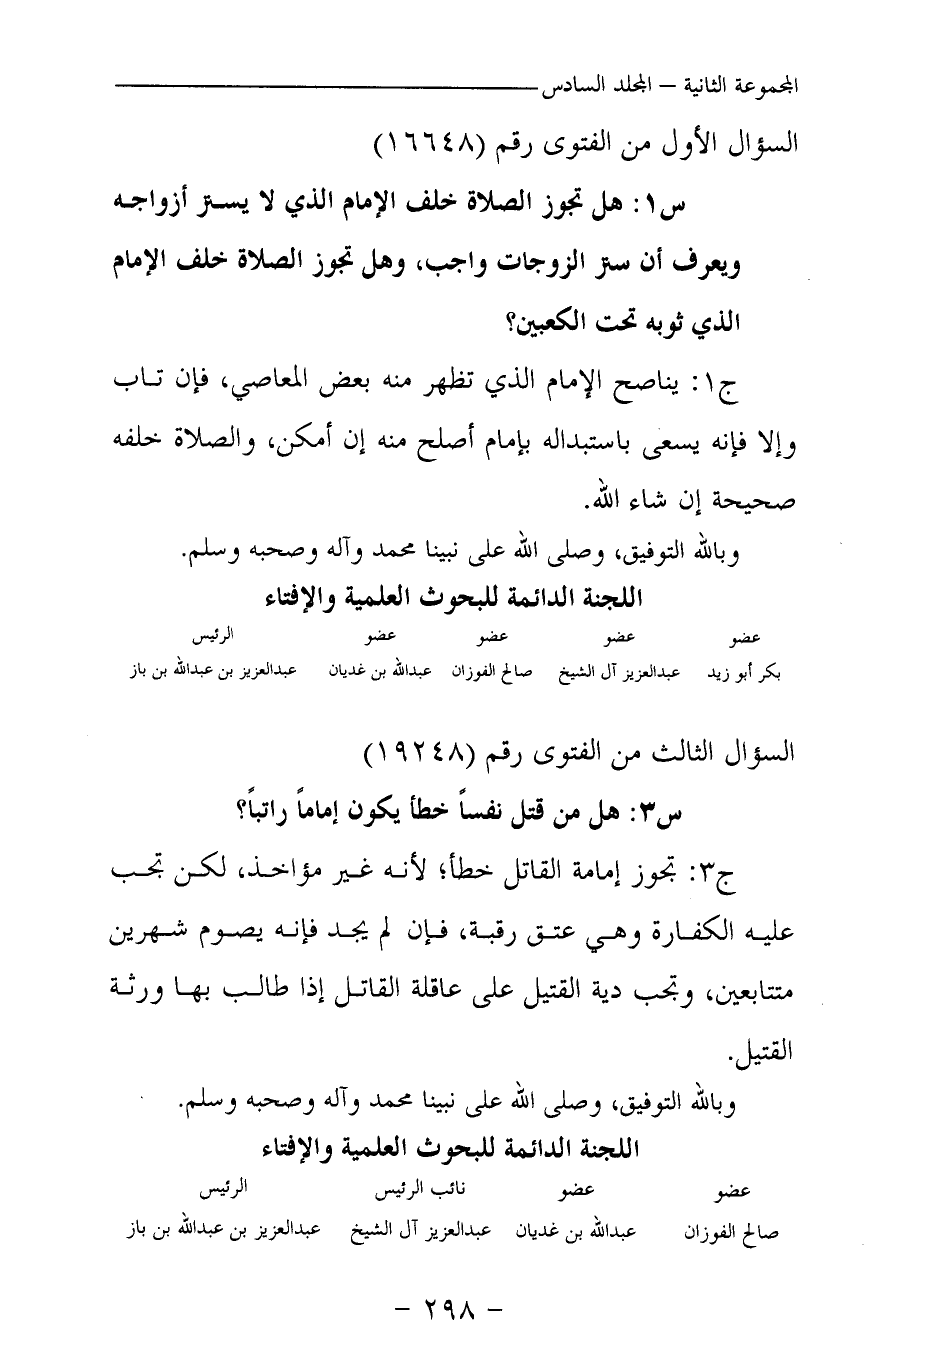 المجموعة الثانية – المجلد السادس
السؤال الأول من الفتوى رقم (١٦٦٤٨)
س١: هل تجوز الصلاة خلف الإمام الذي لا يستر أزواجه
ويعرف أن ستر الزوجات واجب، وهل تجوز الصلاة خلف الإمام
الذي ثوبه تحت الكعبين؟
ج١: يناصح الإمام الذي تظهر منه بعض المعاصي، فإن تاب
وإلا فإنه يسعى باستبداله بإمام أصلح منه إن أمكن، والصلاة خلفه
صحيحة إن شاء الله.
وبالله التوفيق، وصلى الله على نبينا محمد وآله وصحبه وسلم.
اللجنة الدائمة للبحوث العلمية والإفتاء
عضو عضو عضو عضو الرئيس
بكر أبو زيد عبدالعزيز آل الشيخ صالح الفوزان عبدالله بن غديان عبدالعزيز بن عبدالله بن باز
السؤال الثالث من الفتوى رقم (١٩٢٤٨)
س٣: هل من قتل نفساً خطأ يكون إماماً راتباً؟
ج٣: تجوز إمامة القاتل خطأ؛ لأنه غير مؤاخذ، لكن تجب
عليه الكفارة وهي عتق رقبة، فإن لم يجد فإنه يصوم شهرين
متتابعين، وتجب دية القتيل على عاقلة القاتل إذا طالب بها ورثة
القتيل.
وبالله التوفيق، وصلى الله على نبينا محمد وآله وصحبه وسلم.
اللجنة الدائمة للبحوث العلمية والإفتاء
عضو عضو نائب الرئيس الرئيس
صالح الفوزان عبدالله بن غديان عبدالعزيز آل الشيخ عبدالعزيز بن عبدالله بن باز
– ٢٩٨ –